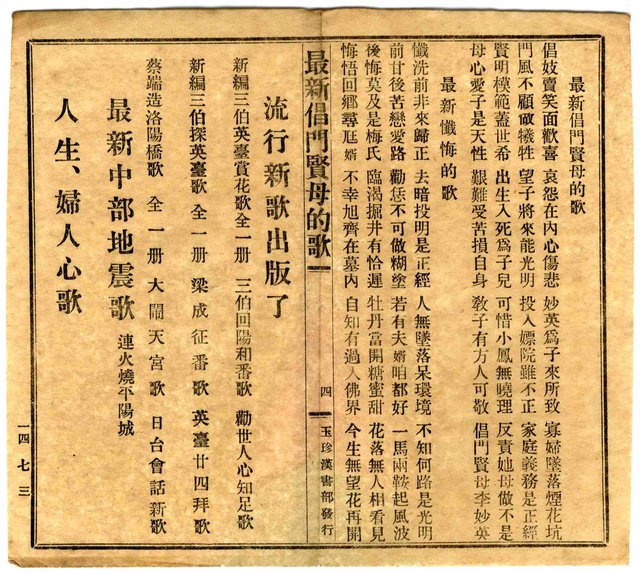 最新倡門賢母的歌
倡妓賣笑面歡喜 哀怨在內心傷悲 妙英爲子來所致 寡婦墜落煙花坑
門風不顧做犧牲 望子將來能光明 投入嫖院雖不正 家庭義務是正經
賢明模範蓋世希 出生入死爲子兒 可惜小鳳無曉理 反責她母做不是
母心愛子是天性 艱難受苦損自身 敎子有方人可敬 倡門賢母李妙英
最新懺悔的歌
懺洗前非來歸正 去暗投明是正經 人無墜落呆環境 不知何路是光明
前甘後苦戀愛路 勸恁不可做糊塗 若有夫婿咱都好 一馬兩鞍起風波
後悔莫及是梅氏 臨渴掘井有恰遲 牡丹當開糖蜜甜 花落無人相看見
悔悟回鄉尋尫婿 不幸旭齊在墓內 自知有過入佛界 今生無望花再開
最新倡門賢母的歌 四 玉珍漢書部發行
流行新歌出版了
新編三伯英臺賞花歌 全一册 三伯回陽和番歌 勸世人心知足歌
新編三伯探英臺歌 全一册 梁成征番歌 英臺廿四拜歌
蔡端造洛陽橋歌 全一册 大鬧天宮歌 日台會話新歌
最新中部地震歌 連火燒平陽城
人生、婦人心歌
一四七三